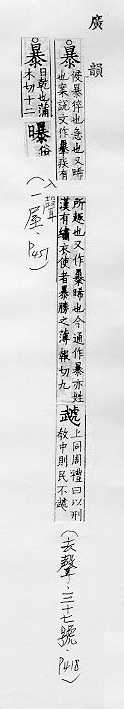 廣韻
暴 侯暴猝也急也又晞也案說文作㬥疾有所趣也又作暴晞也今通作暴亦姓漢有繡衣使者暴勝之薄報切九 虣 上同周禮曰以刑教中則民不虣 (去聲·三十七號·P418)
暴 日乾也蒲木切十二 曝 俗 (入聲 一屋 P451)